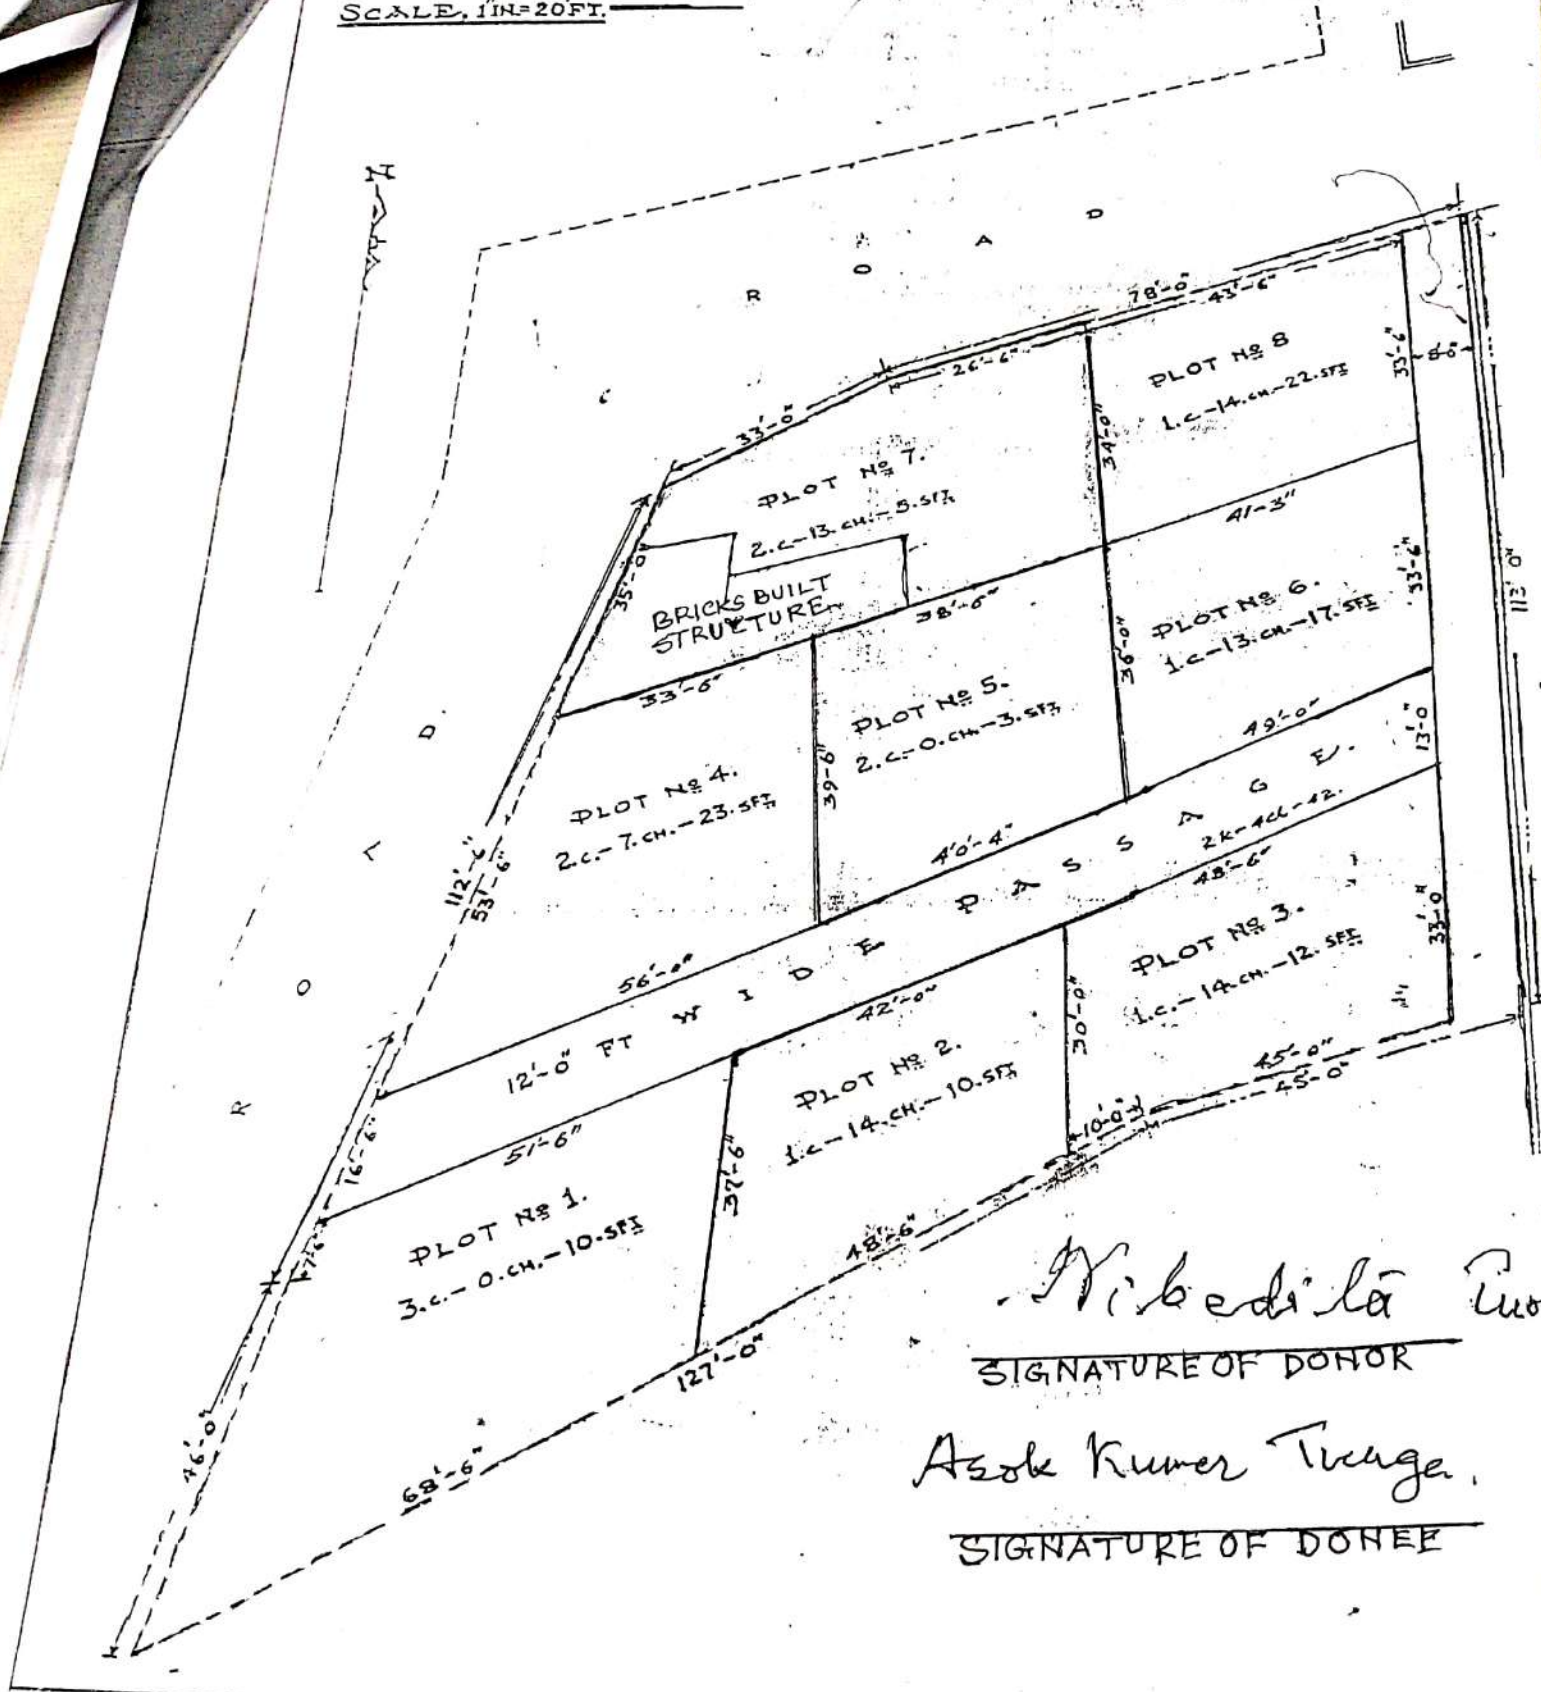 SCALE. 1 IN=20FT.
N
R O A D
78'-0"
43'-6"
26'-6"
33'-0"
PLOT Nº 8
1.C-14.CH-22.SFT
33'-6"
8'-0"
34'-0"
PLOT Nº 7.
2.C-13.CH.-5.SFT
41-3"
35'-0"
BRICKS BUILT
STRUCTURE
38'-6"
33'-6"
33'-6"
113'0"
PLOT Nº 6.
1.C-13.CH.-17.SFT
36'-0"
PLOT Nº 5.
2.C.-0.CH.-3.SFT
39'-6"
49'-0"
13'-0"
PLOT Nº 4.
2.C.-7.CH.-23.SFT
40'-4"
56'-0"
112'-6"
53'-6"
R O A D.
12'-0" FT WIDE PASSAGE.
2K-4CH-42.
48'-6"
42'-0"
51'-6"
16'-6"
PLOT Nº 3.
1.C.-14.CH.-12.SFT
33'-0"
30'-0"
PLOT Nº 2.
1.C-14.CH.-10.SFT
37'-6"
45'-0"
45'-0"
10'-0"
PLOT Nº 1.
3.C.-0.CH.-10.SFT
7'-6"
48'-6"
127'-0"
68'-6"
46'-0"
Nibedita
SIGNATURE OF DONOR
Asok Kumar
SIGNATURE OF DONEE